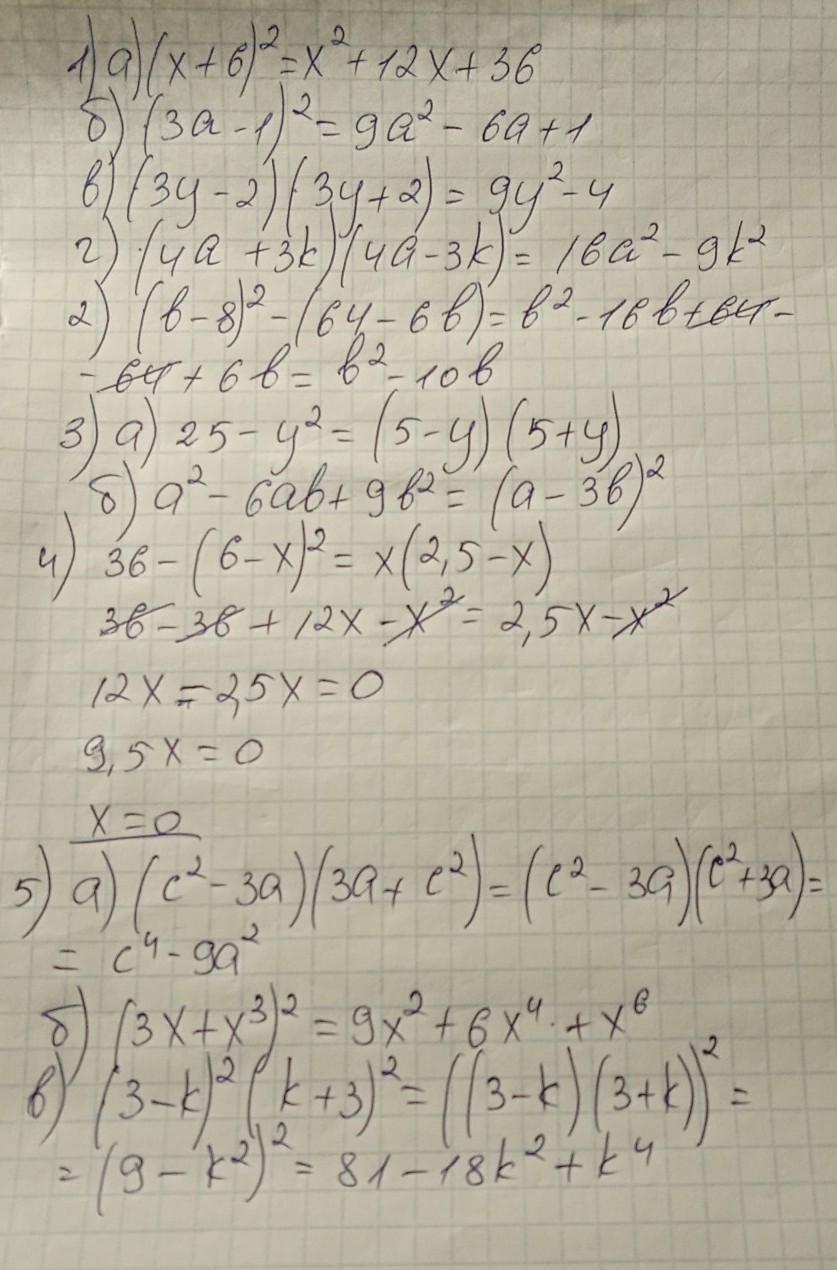 1) а) (x+6)²=x²+12x+36
б) (3a-1)²=9a²-6a+1
в) (3y-2)(3y+2)=9y²-4
г) (4a+3k)(4a-3k)=16a²-9k²
2) (b-8)²-(64-6b)=b²-16b+64-
-64+6b=b²-10b
3) а) 25-y²=(5-y)(5+y)
б) a²-6ab+9b²=(a-3b)²
4) 36-(6-x)²=x(2,5-x)
36-36+12x-x²=2,5x-x²
12x-2,5x=0
9,5x=0
x=0
5) а) (c²-3a)(3a+c²)=(c²-3a)(c²+3a)=
=c⁴-9a²
б) (3x+x³)²=9x²+6x⁴+x⁶
в) (3-k)²(k+3)²=((3-k)(3+k))²=
=(9-k²)²=81-18k²+k⁴